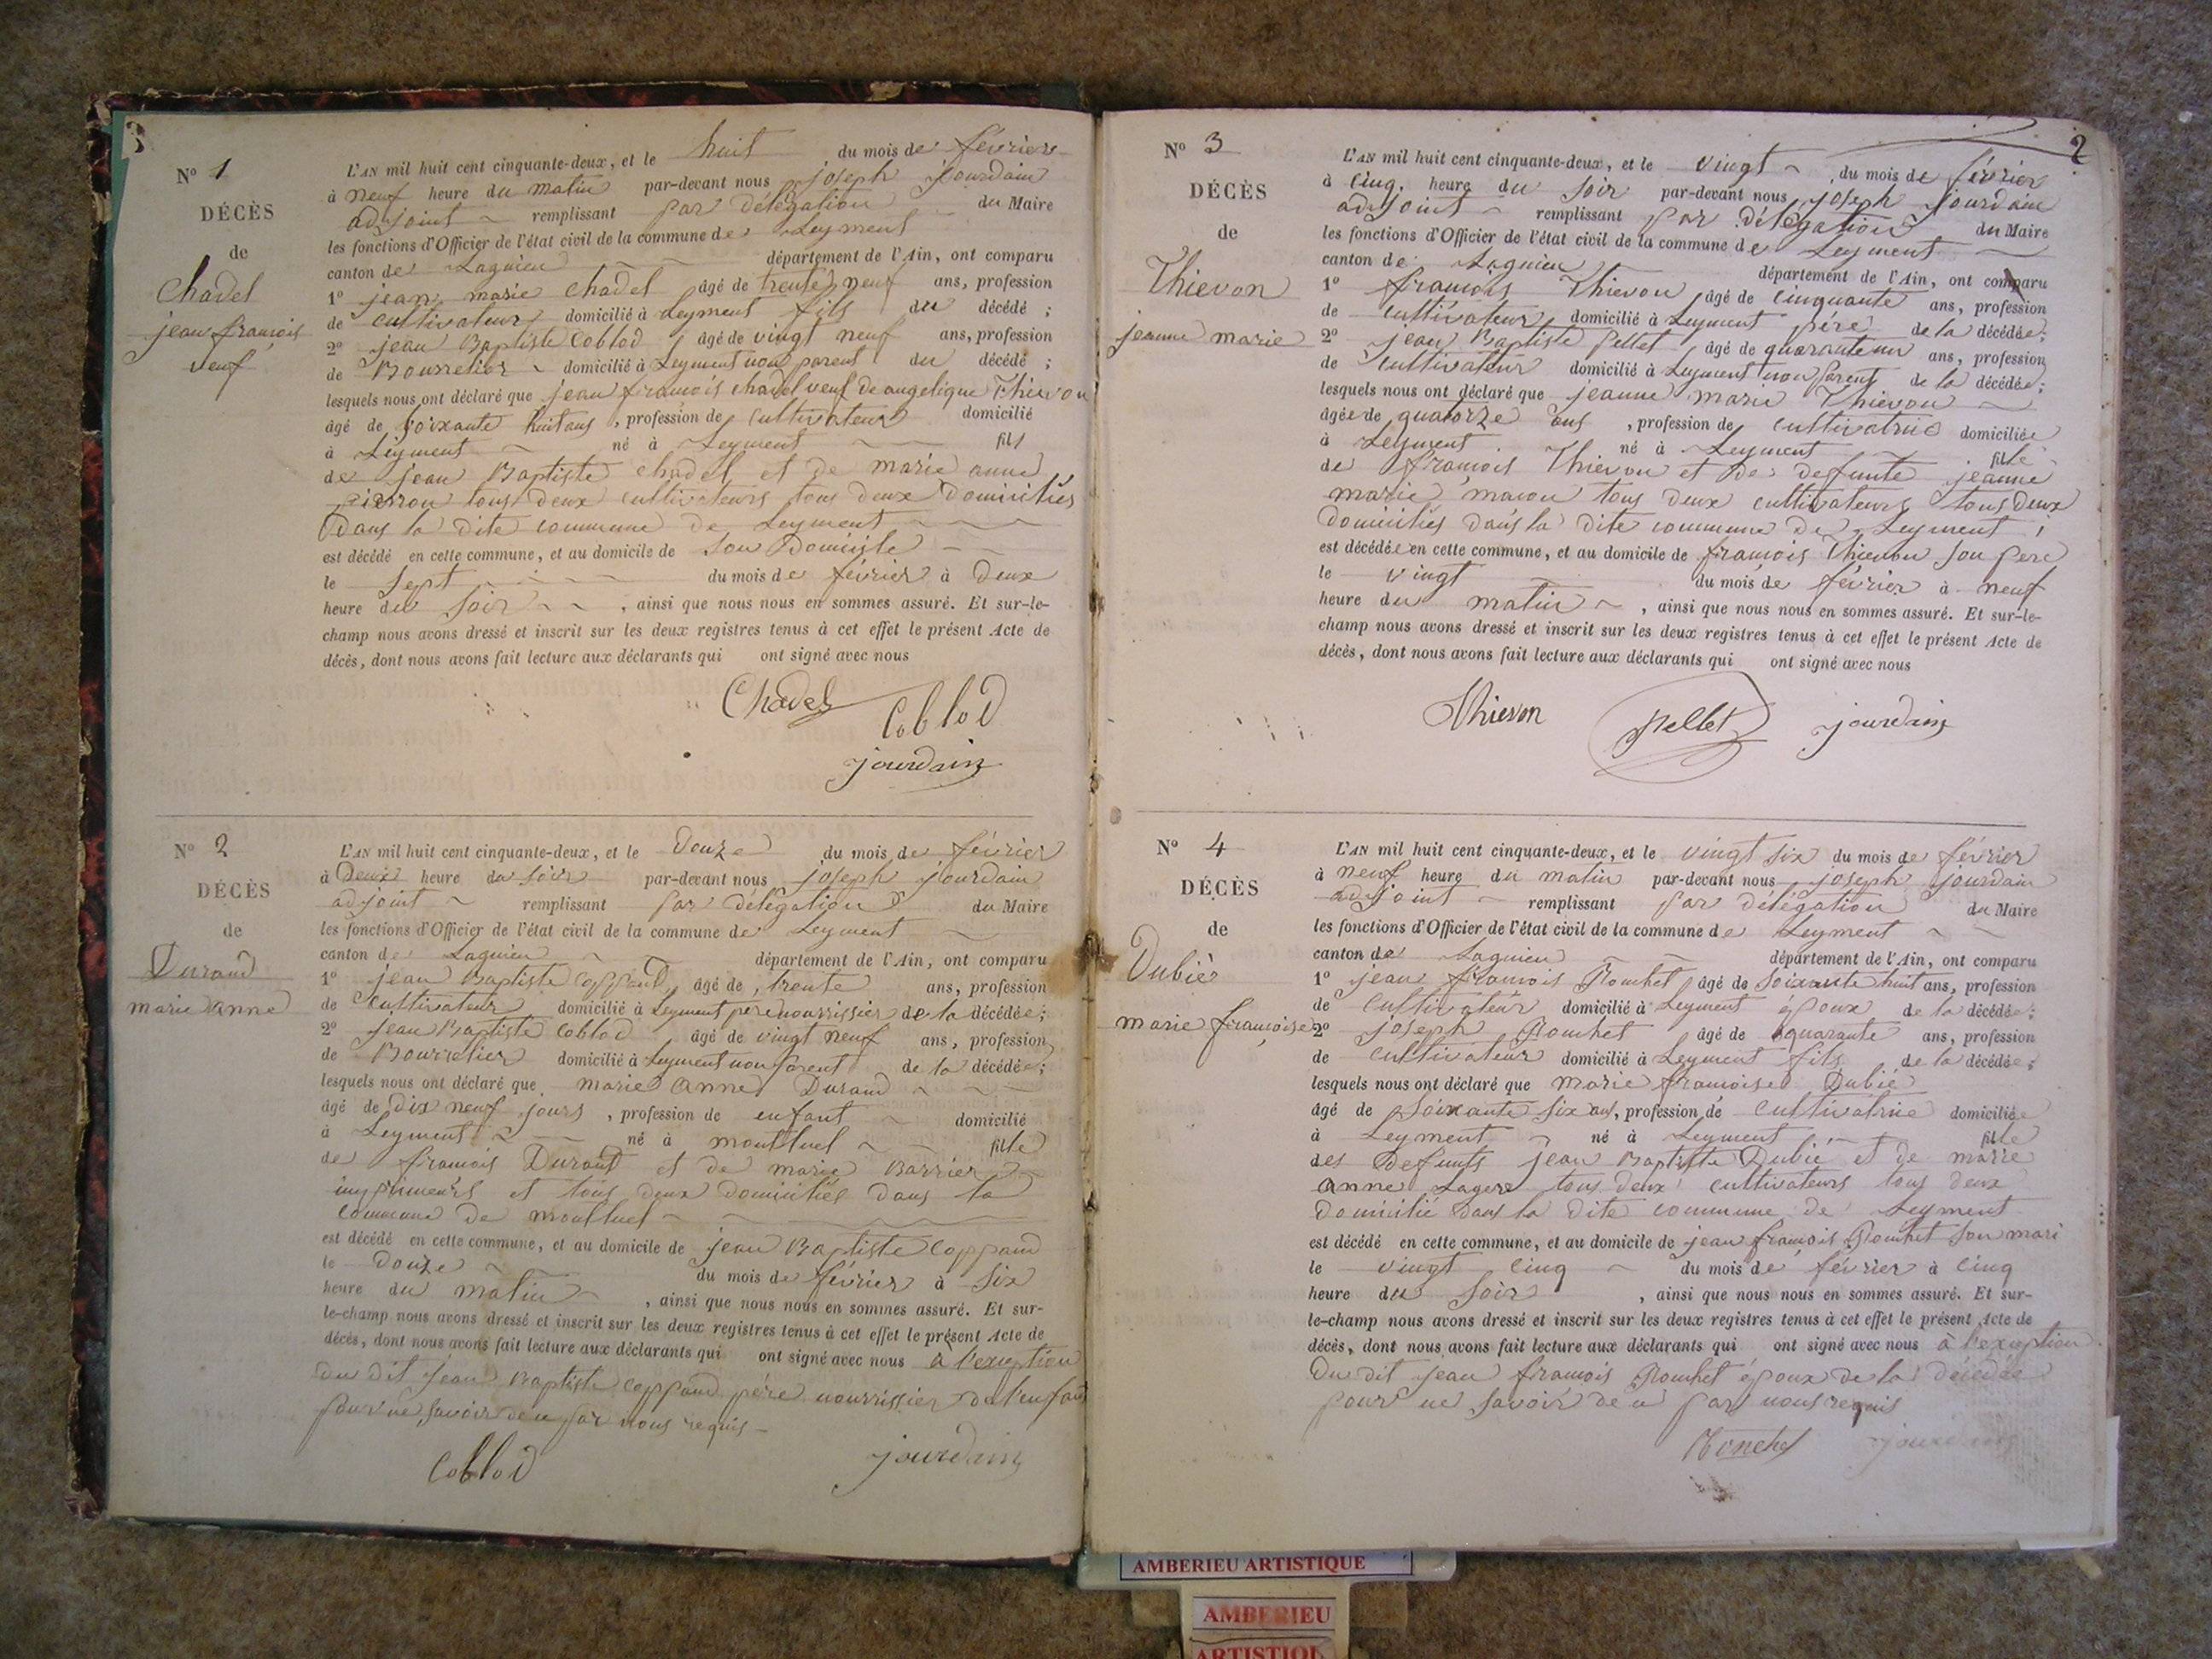 N° 1
DÉCÈS
de
Chadel
jean françois
veuf
L'AN mil huit cent cinquante-deux, et le huit du mois de février
à neuf heure du matin par-devant nous joseph jourdain
adjoint remplissant par délégation du Maire
les fonctions d'Officier de l'état civil de la commune de Leyment
canton de Lagnieu département de l'Ain, ont comparu
1° jean marie Chadel âgé de trente neuf ans, profession
de cultivateur domicilié à Leyment fils du décédé ;
2° jean Baptiste Coblod âgé de vingt neuf ans, profession
de Bourrelier domicilié à Leyment non parent du décédé ;
lesquels nous ont déclaré que jean françois chadel veuf de angelique Thievon
âgé de soixante huit ans, profession de cultivateur domicilié
à Leyment né à Leyment fils
de jean Baptiste chadel et de marie anne
pierron tous deux cultivateurs tous deux domiciliés
dans la dite commune de Leyment
est décédé en cette commune, et au domicile de son Domicile
le sept du mois de février à deux
heure du soir, ainsi que nous nous en sommes assuré. Et sur-le-
champ nous avons dressé et inscrit sur les deux registres tenus à cet effet le présent Acte de
décès, dont nous avons fait lecture aux déclarants qui ont signé avec nous
Chadel
Coblod
jourdain
N° 2
DÉCÈS
de
Durand
marie anne
L'AN mil huit cent cinquante-deux, et le douze du mois de février
à Deux heure du soir par-devant nous joseph jourdain
adjoint remplissant par délégation du Maire
les fonctions d'Officier de l'état civil de la commune de Leyment
canton de Lagnieu département de l'Ain, ont comparu
1° jean Baptiste Coppand âgé de trente ans, profession
de cultivateur domicilié à Leyment père nourrissier de la décédée ;
2° jean Baptiste Coblod âgé de vingt neuf ans, profession
de Bourrelier domicilié à Leyment non parent de la décédée ;
lesquels nous ont déclaré que marie anne Durand
âgé de dix neuf jours, profession de enfant domicilié
à Leyment né à montluel fille
de françois Durant et de marie Barrier
imprimeurs et tous deux domiciliés dans la
commune de montluel
est décédé en cette commune, et au domicile de jean Baptiste Coppand
le douze du mois de février à six
heure du matin, ainsi que nous nous en sommes assuré. Et sur-
le-champ nous avons dressé et inscrit sur les deux registres tenus à cet effet le présent Acte de
décès, dont nous avons fait lecture aux déclarants qui ont signé avec nous à l'exception
du dit jean Baptiste Coppand père nourrissier de l'enfant
pour ne savoir de ce par nous requis
Coblod jourdain
2
N° 3
DÉCÈS
de
Thievon
jeanne marie
L'AN mil huit cent cinquante-deux, et le vingt du mois de février
à cinq heure du soir par-devant nous joseph jourdain
adjoint remplissant par délégation du Maire
les fonctions d'Officier de l'état civil de la commune de Leyment
canton de Lagnieu département de l'Ain, ont comparu
1° françois Thievon âgé de cinquante ans, profession
de cultivateur domicilié à Leyment père de la décédée ;
2° jean Baptiste Pellet âgé de quarante un ans, profession
de cultivateur domicilié à Leyment non parent de la décédée ;
lesquels nous ont déclaré que jeanne marie Thievon
âgée de quatorze ans, profession de cultivatrice domiciliée
à Leyment né à Leyment fille
de françois Thievon et de defunte jeanne
marie macon tous deux cultivateurs tous deux
domiciliés dans la dite commune de Leyment
est décédée en cette commune, et au domicile de françois Thievon son pere
le vingt du mois de février à neuf
heure du matin, ainsi que nous nous en sommes assuré. Et sur-le-
champ nous avons dressé et inscrit sur les deux registres tenus à cet effet le présent Acte de
décès, dont nous avons fait lecture aux déclarants qui ont signé avec nous
Thievon Pellet jourdain
N° 4
DÉCÈS
de
Dubié
marie françoise
L'AN mil huit cent cinquante-deux, et le vingt six du mois de février
à neuf heure du matin par-devant nous joseph jourdain
adjoint remplissant par délégation du Maire
les fonctions d'Officier de l'état civil de la commune de Leyment
canton de Lagnieu département de l'Ain, ont comparu
1° jean françois Ronchet âgé de soixante huit ans, profession
de cultivateur domicilié à Leyment époux de la décédée ;
2° joseph Ronchet âgé de quarante ans, profession
de cultivateur domicilié à Leyment fils de la décédée ;
lesquels nous ont déclaré que marie françoise Dubié
âgé de soixante six ans, profession de cultivatrice domiciliée
à Leyment né à Leyment fille
des Defunts jean Baptiste Dubié et de marie
anne tous deux cultivateurs tous deux
domicilié dans la dite commune de Leyment
est décédé en cette commune, et au domicile de jean françois Ronchet son mari
le vingt cinq du mois de février à cinq
heure du soir, ainsi que nous nous en sommes assuré. Et sur-
le-champ nous avons dressé et inscrit sur les deux registres tenus à cet effet le présent Acte de
décès, dont nous avons fait lecture aux déclarants qui ont signé avec nous à l'exception
du dit jean françois Ronchet époux de la décédée
pour ne savoir de ce par nous requis
Ronchet jourdain
AMBERIEU ARTISTIQUE
AMBERIEU
ARTISTIQUE